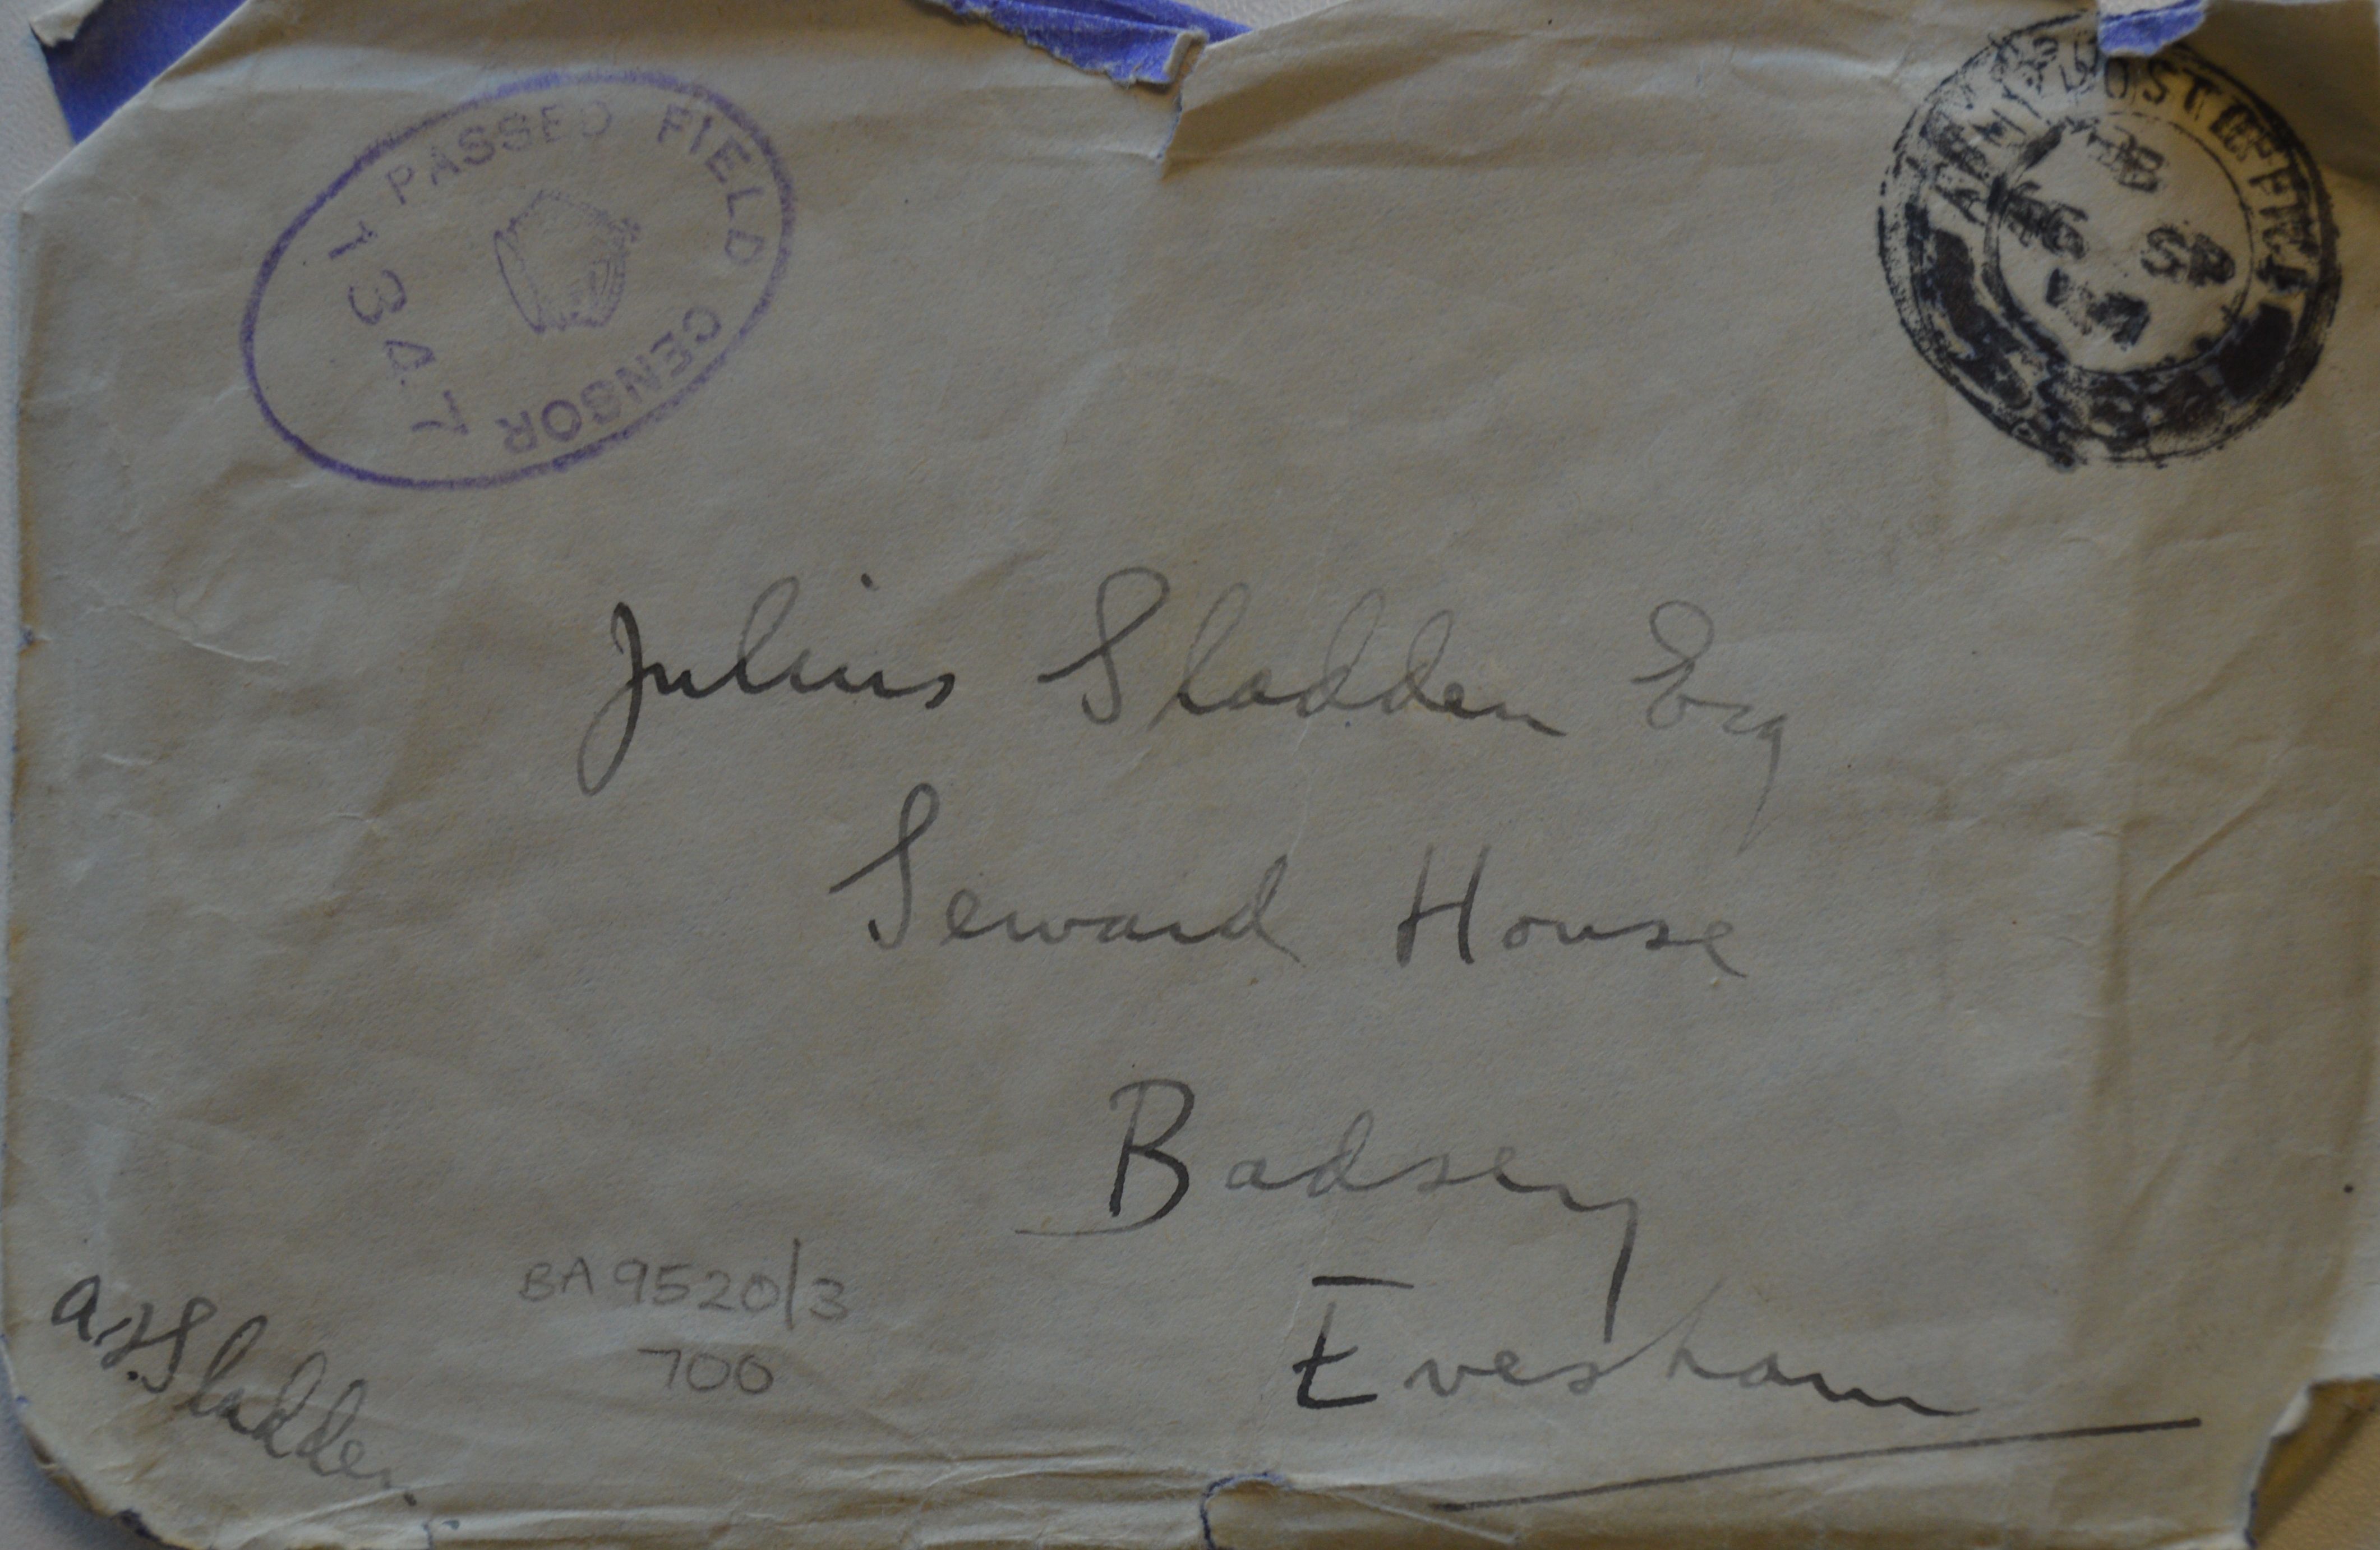 PASSED FIELD CENSOR
1347
ARMY POST OFFICE
SP
17
Julius Sladden Esq
Seward House
Badsey
Evesham
BA 9520/3
700
Sladden